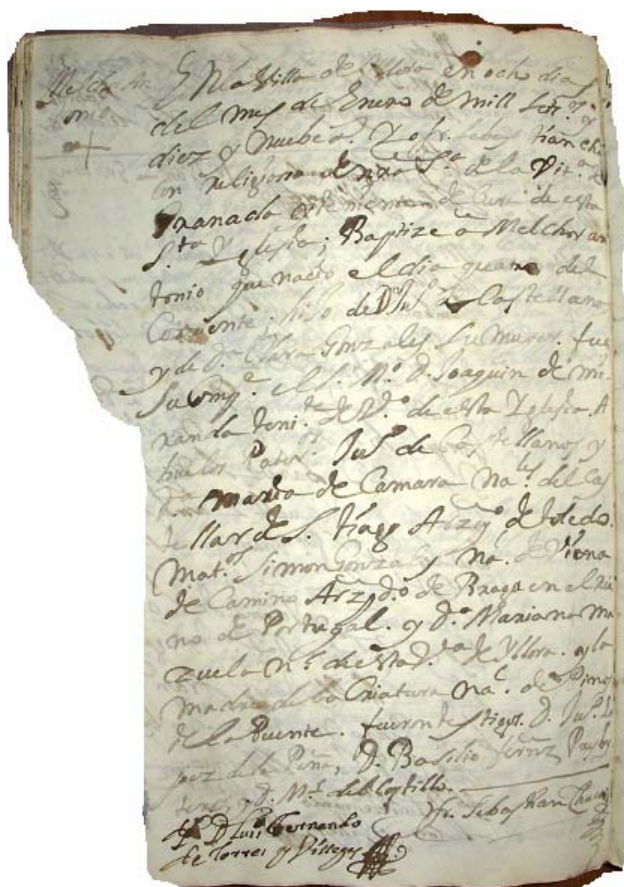 Melchor An
tonio
En la Villa de Yllora en ocho dias
del mes de Enero de mill
diez y nuebe Yo fr.
religioso de nra Sª de la Vit.ª
Granada theniente de Cura de esta
S.ta Yglesia; Baptize a Melchor an
tonio que nacio el dia quatro del
Corriente. hijo de D. Juº de Castellano
y de D.ª Clara Gonzales su muger. fue
su comp.e el S. D. Joaquin de mi
randa teni.te de V.º de esta Yglesia. A
buelos Pater.s Juº de Castellanos y
maria de Camara Na.les del Cas
tellar de S. tiago Arz.º de toledo.
Mat.os Simon Gonzales y Na. de Viana
de Camino Arz.do de Braga en el Rei
no de Portugal. y D.ª Mariana ma
zuela n.l de esta V.ª de Yllora. y la
madre de la Criatura Na.l de Pinos
de la Puente. fueron testigos. D. Juº Lo
pez de la Peña, D. Basilio Prèsbi
tero, y D. M.l del Castillo.
fr. Sebastian Chacon
D. Luis Fernando
de Torres y Villegas